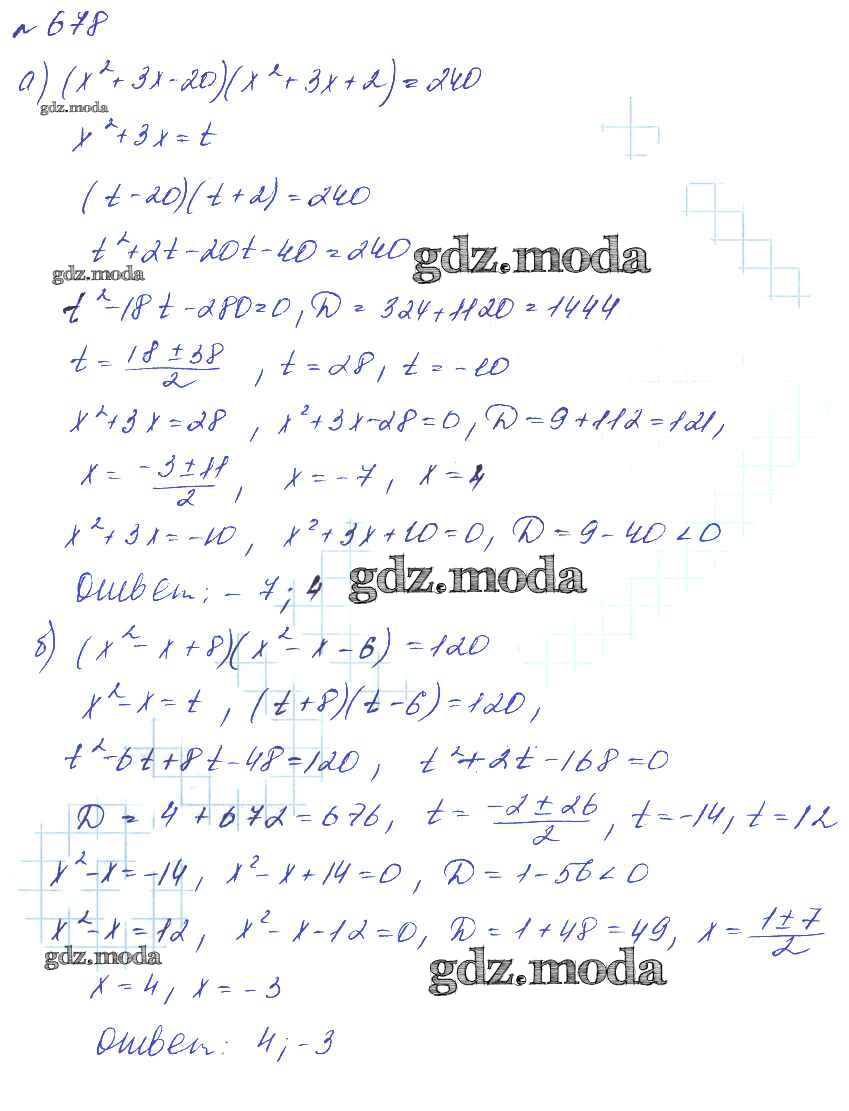 № 678
а) (x² + 3x - 20)(x² + 3x + 2) = 240
gdz.moda
x² + 3x = t
(t - 20)(t + 2) = 240
t² + 2t - 20t - 40 = 240 gdz.moda
gdz.moda
t² - 18t - 280 = 0, D = 324 + 1120 = 1444
t = (18 ± 38)/2, t = 28, t = -10
x² + 3x = 28, x² + 3x - 28 = 0, D = 9 + 112 = 121,
x = (-3 ± 11)/2, x = -7, x = 4
x² + 3x = -10, x² + 3x + 10 = 0, D = 9 - 40 < 0
Ответ: -7; 4 gdz.moda
б) (x² - x + 8)(x² - x - 6) = 120
x² - x = t, (t + 8)(t - 6) = 120,
t² - 6t + 8t - 48 = 120, t² + 2t - 168 = 0
D = 4 + 672 = 676, t = (-2 ± 26)/2, t = -14, t = 12
x² - x = -14, x² - x + 14 = 0, D = 1 - 56 < 0
x² - x = 12, x² - x - 12 = 0, D = 1 + 48 = 49, x = (1 ± 7)/2
gdz.moda gdz.moda
x = 4, x = -3
Ответ: 4; -3